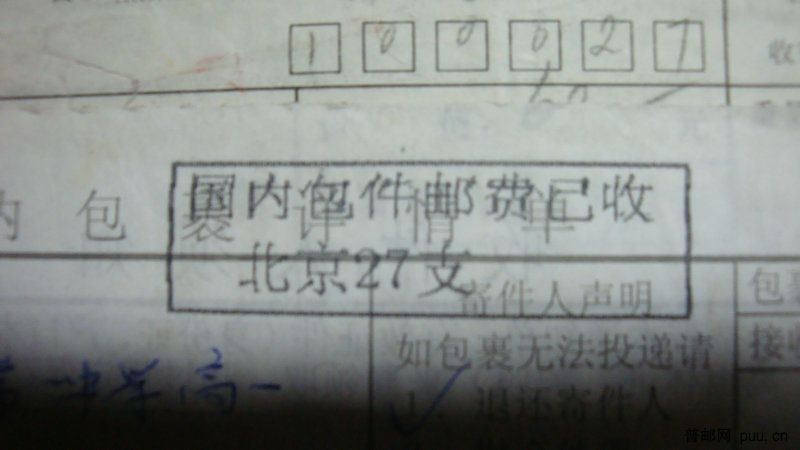 100027
收
国内包件邮费已收
内包裹详情单
北京27支
寄件人声明
包裹
如包裹无法投递请
接收
中学高一
1. ✓ 退还寄件人
普邮网 puu.cn